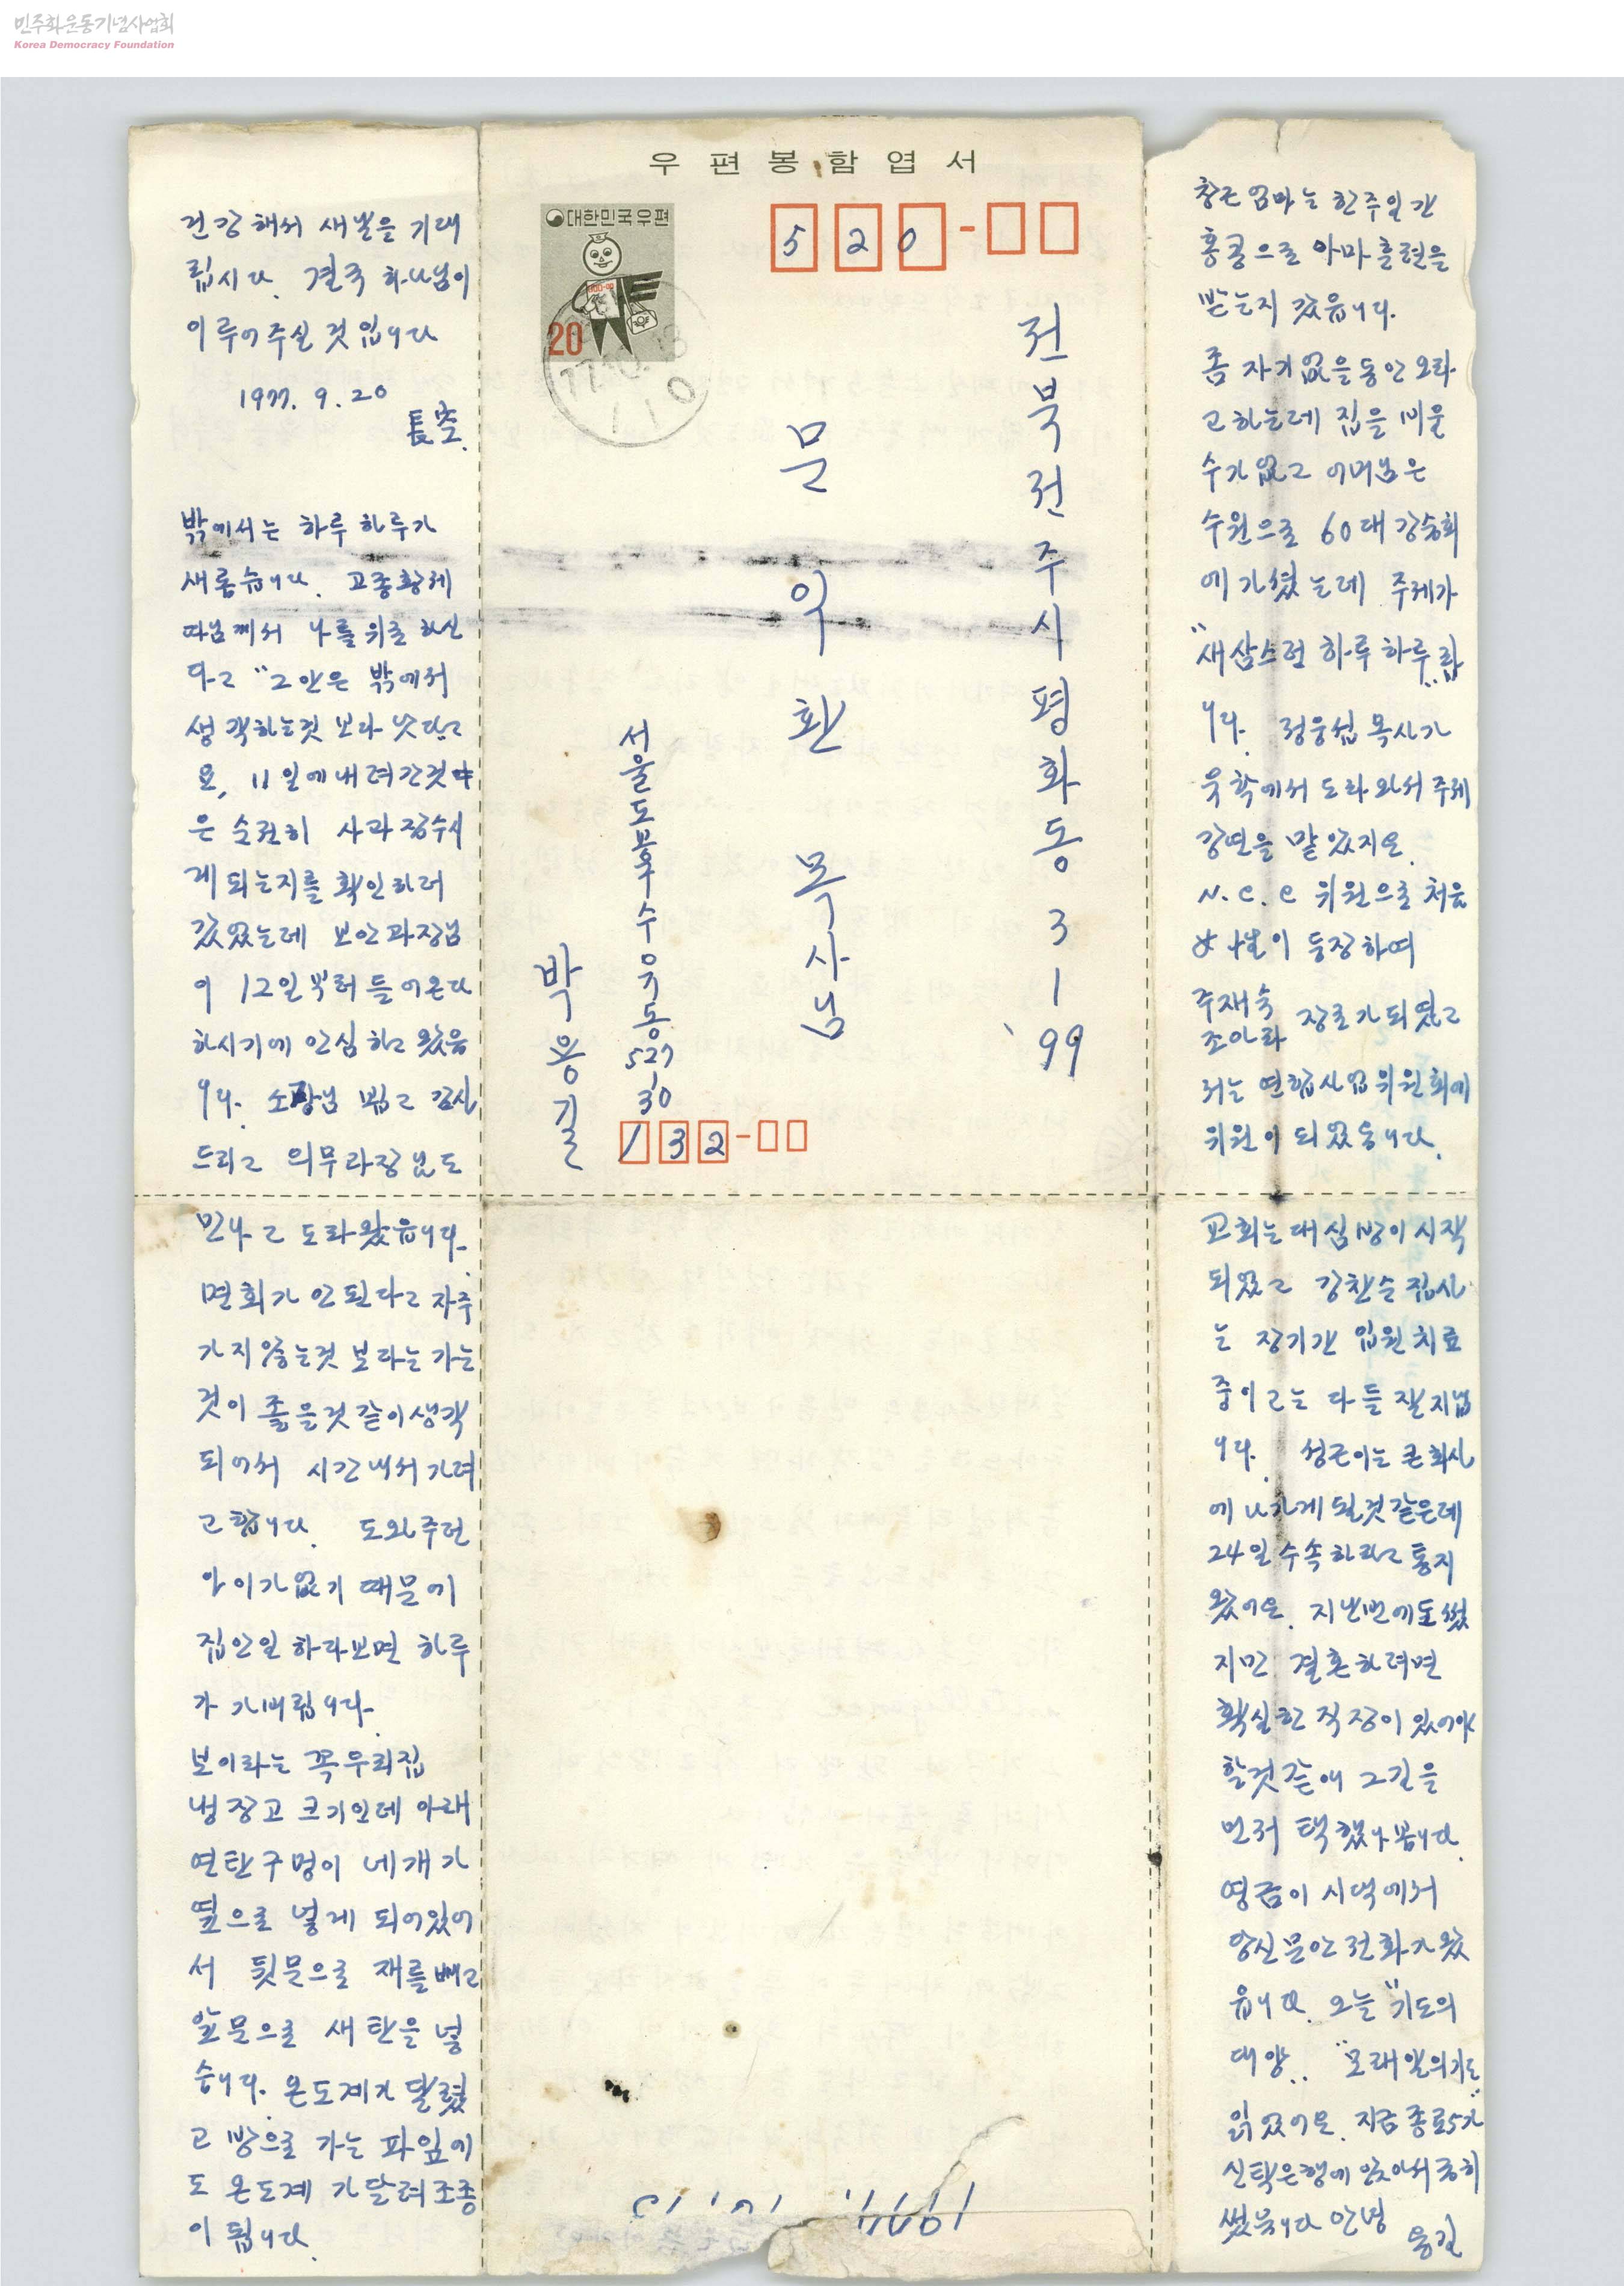 민주화운동기념사업회
Korea Democracy Foundation
건강해서 새날을 기대
립시다. 결국 하나님이
이루어주실 것입니다
1977. 9. 20
長空.
밖에서는 하루하루가
새롭습니다. 고종황제
따님께서 나를 위로하신
다고 "그안은 밖에서
생각하는것 보라 낫다고
요, 11일에 내려간것
은 순전히 사과 잡수시
게 되는지를 확인하러
갔었는데 보안과장님
이 12일부터 들어온다
하시기에 안심하고 왔읍
니다. 소장님 뵙고 감사
드리고 의무과장님도
만나고 도라왔읍니다.
면회가 안된다고 자주
가지않는것 보다는 가는
것이 좋을것같이 생각
되어서 시간내서 가려
고 합니다. 도와주던
아이가 없기 때문에
집안일 하다보면 하루
가 가버립니다.
보이라는 꼭 우리집
냉장고 크기인데 아래
연탄구멍이 네개가
옆으로 넣게 되어있어
서 뒷문으로 재를 빼고
앞문으로 새탄을 넣
습니다. 온도계가 달렸
고 방으로 가는 파잎에
도 온도계가 달려 조종
이 됩니다.
우편봉함엽서
대한민국우편
20
77.10.18
110
520-
전북 전주시 평화동 3-1 99
문익환 목사님
서울 도봉구 수유동 527 30
박용길
132-
1977. 10. 15
창근엄마는 한주일간
홍콩으로 아마 훈련을
받는지 갔읍니다.
좀 자기없을동안 오라
고하는데 집을 비울
수가 없고 어머님은
수원으로 60대 강습회
에 가셨는데 주제가
"새삼스런 하루하루" 랍
니다. 정웅섭 목사가
유학에서 도라와서 주제
강연을 맡았지요.
N.C.C 위원으로 처음
女성이 등장하여
주재숙
조아라 장로가 되였고
저는 연합사업위원회에
위원이 되였읍니다.
교회는 대심방이 시작
되였고 강찬순 집사
는 장기간 입원치료
중이고는 다들 잘지냅
니다. 성근이는 큰회사
에 나가게 될것같은데
24일 수속하라고 통지
왔어요. 지난번에도 썼
지만 결혼하려면
확실한 직장이 있어야
할것같애 그길을
먼저 택했나봅니다.
영금이 시댁에서
당신 문안 전화가 왔
읍니다. 오늘 "기도의
대양" "모래알의기도"
읽었어요. 지금 종로5가
신탁은행에 앉아서 급히
썼읍니다 안녕
용길